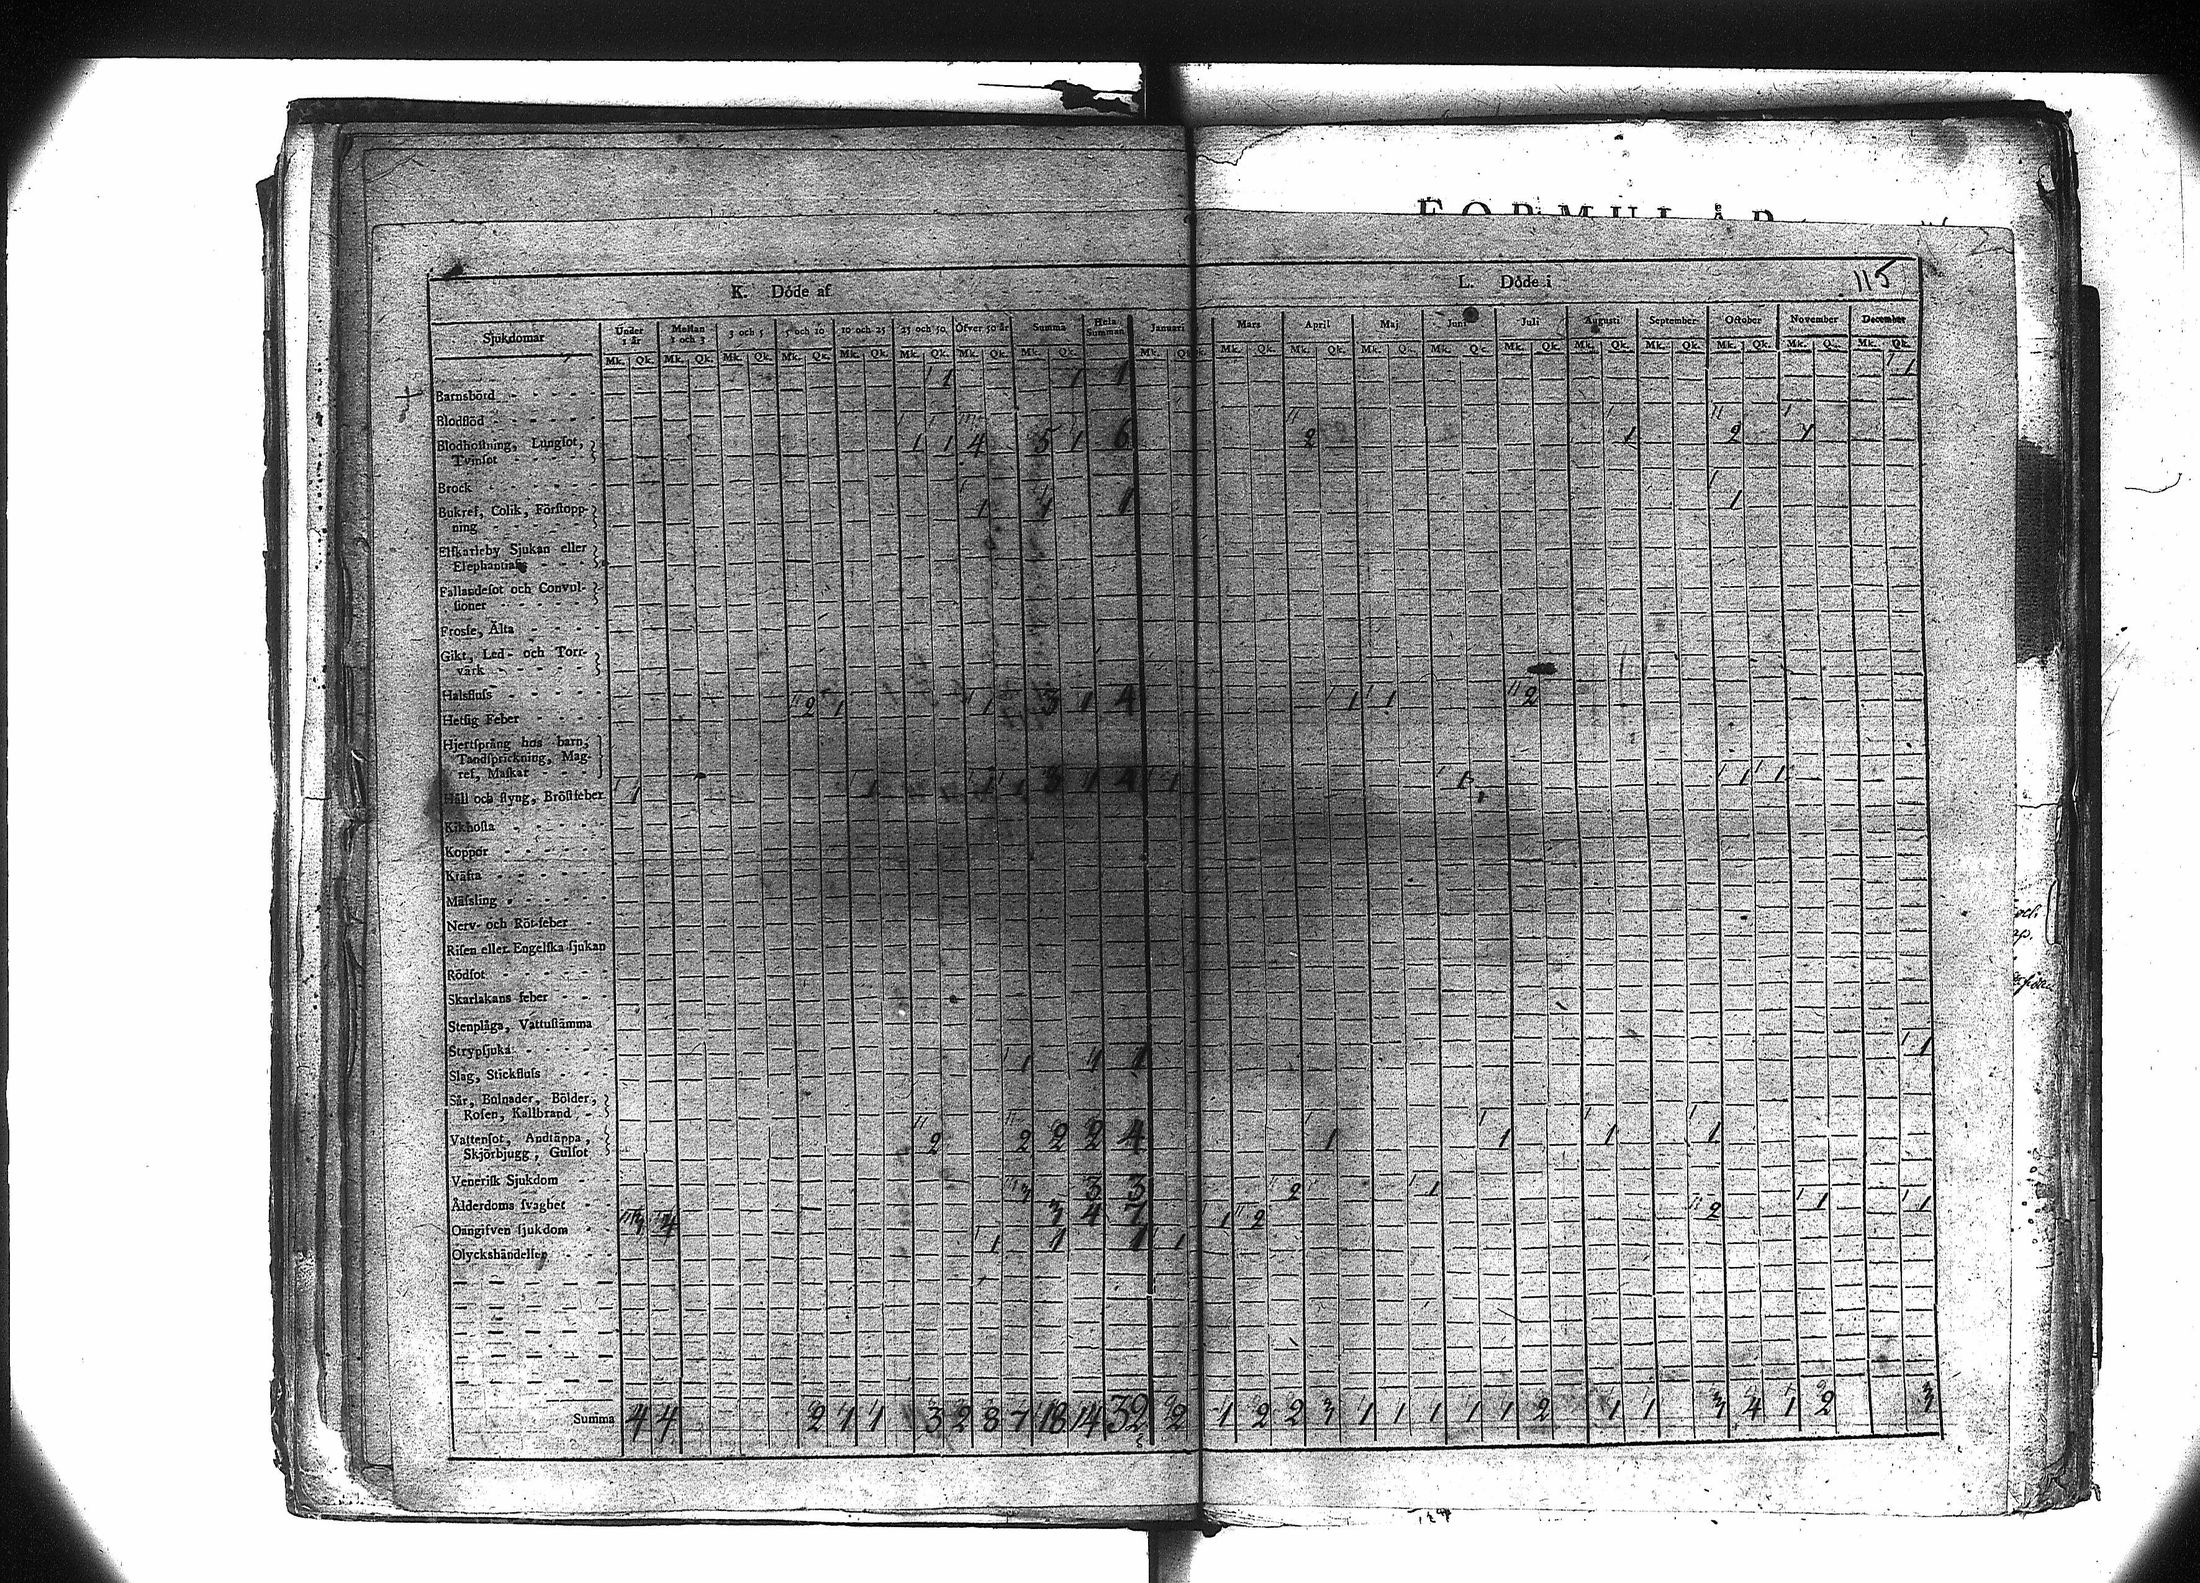 FORMULÄR
115
K. Döde af
L. Döde i
Sjukdomar Under 1 år Mellan 1 och 3 3 och 5 5 och 10 10 och 25 25 och 50 Öfver 50 år Summa Hela Summan Januari Mars April Maj Juni Juli Augusti September October November December
Mk. Qk. Mk. Qk. Mk. Qk. Mk. Qk. Mk. Qk. Mk. Qk. Mk. Qk. Mk. Qk. Mk. Qk. Mk. Qk. Mk. Qk. Mk. Qk. Mk. Qk. Mk. Qk. Mk. Qk. Mk. Qk. Mk. Qk. Mk. Qk. Mk. Qk.
Barnsbörd 1 1 1 1
Blodflöd
Blodhostning, Lungsot,
Tvinsot 1 1 4 5 1 6 2 1 2 1
Brock
Bukref, Colik, Förstopp-
ning 1 1 1 1
Elfkarleby Sjukan eller
Elephantiasis
Fallandesot och Convul-
sioner
Frosse, Älta
Gikt, Led- och Torr-
värk
Halsfluss
Hetsig Feber 2 1 1 3 1 4 1 1 2
Hjertsprång hos barn,
Tandsprickning, Mag-
ref, Maskar
Håll och styng, Bröstfeber 1 1 1 1 3 1 4 1 1 1 1
Kikhosta
Koppor
Kräfta
Mässling
Nerv- och Röt-feber
Risen eller Engelska sjukan
Rödsot
Skarlakans feber
Stenplåga, Vattustämma
Strypsjuka
Slag, Stickfluss 1 1 1 1
Sår, Bulnader, Bölder,
Rosen, Kallbrand
Vattensot, Andtäppa,
Skjörbjugg, Gulsot 2 2 2 2 4 1 1 1 1
Venerisk Sjukdom
Ålderdoms svaghet 3 3 3 2 1
Oangifven sjukdom 3 4 3 4 7 1 2 2 1 1
Olyckshändelser 1 1 1 1
Summa 4 4 2 1 1 3 2 8 7 18 14 32 2 1 2 2 3 1 1 1 1 1 2 1 1 3 4 1 2 3